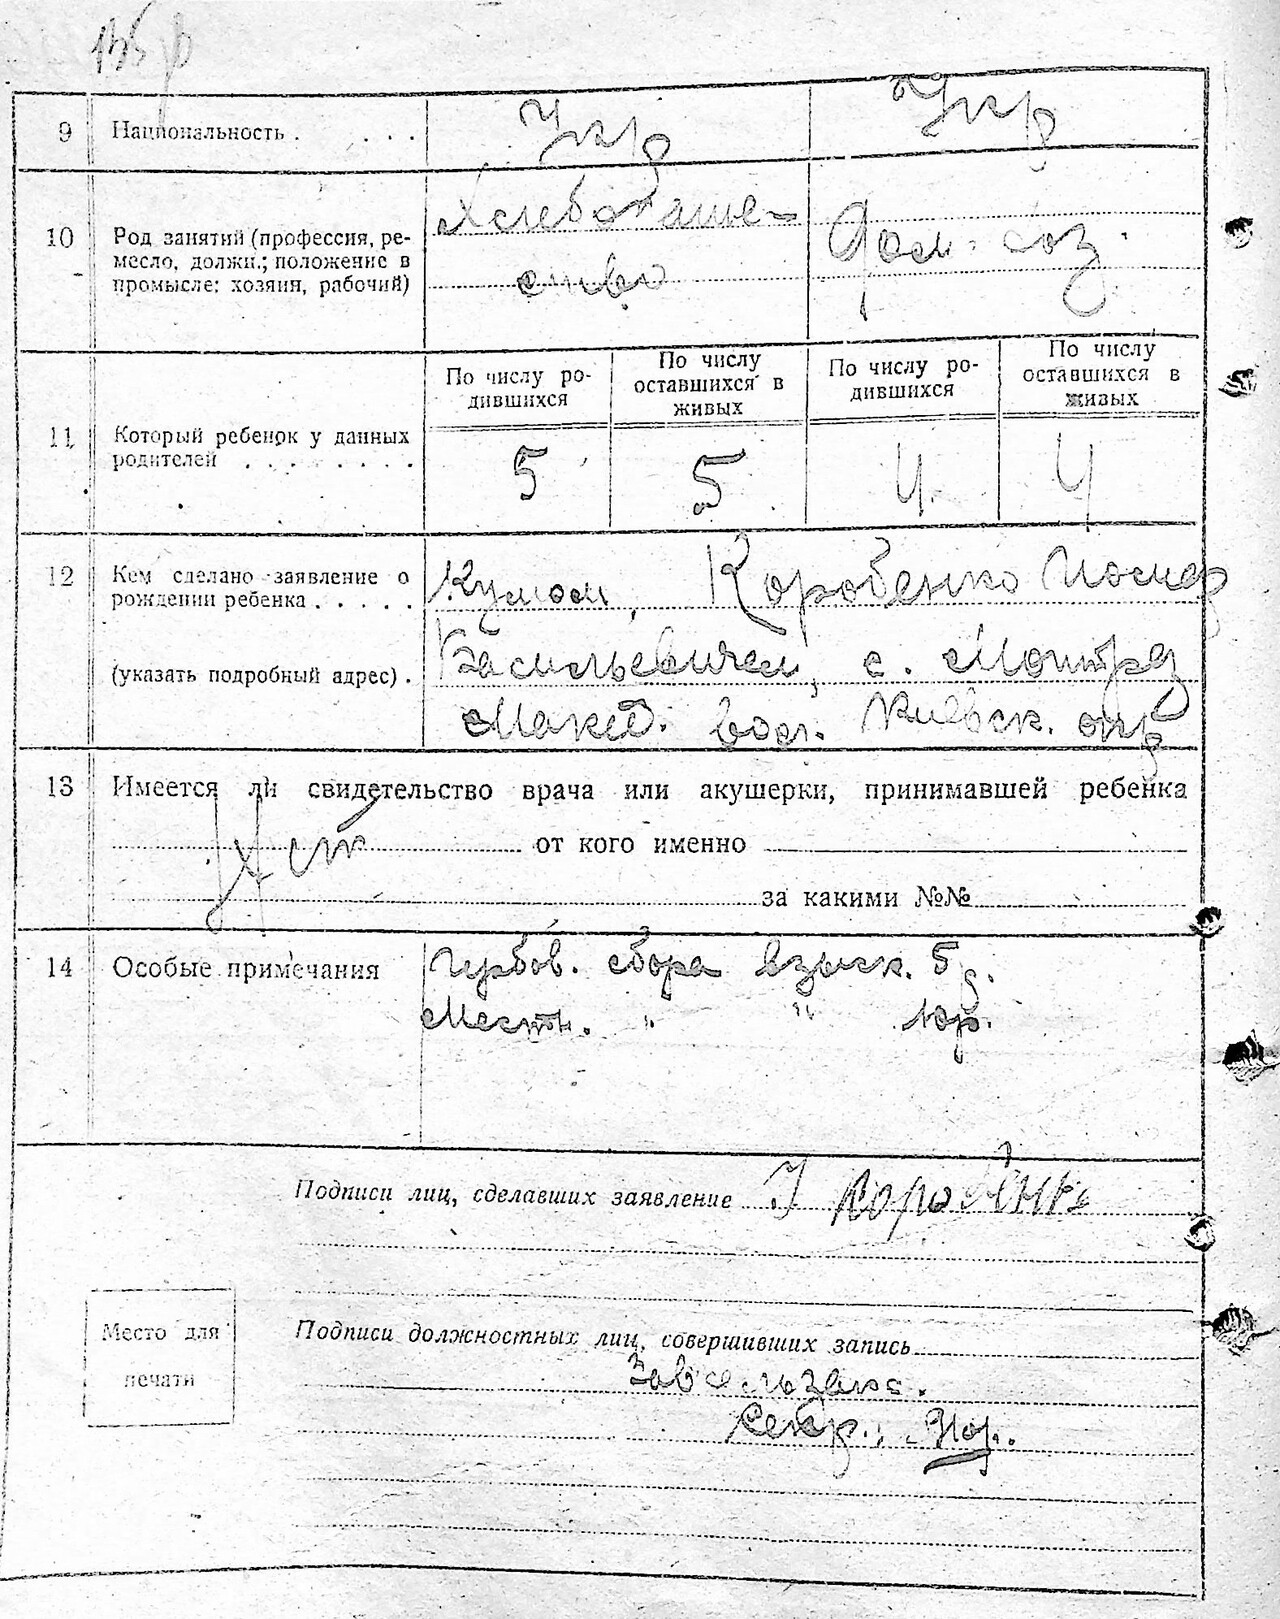 9 Национальность . . . . Укр Укр
10 Род занятий (профессия, ре-
месло, должн.; положение в
промысле: хозяин, рабочий)
Хлебопаше-
ство
Дом. хоз.
По числу ро-
дившихся
По числу
оставшихся в
живых
По числу ро-
дившихся
По числу
оставшихся в
живых
11 Который ребенок у данных
родителей . . . . . . . .
5 5 4 4
12 Кем сделано заявление о
рождении ребенка . . . . .
(указать подробный адрес) .
Кумом, Коробенко Иосиф
Васильевичем, с.
Маков. вол. Киевск. окр
13 Имеется ли свидетельство врача или акушерки, принимавшей ребенка
Нет от кого именно
за какими №№
14 Особые примечания
сбора взыск. 5
Местн. " " 10р.
Подписи лиц, сделавших заявление И Коробенко
Место для
печати
Подписи должностных лиц, совершивших запись
Секр.